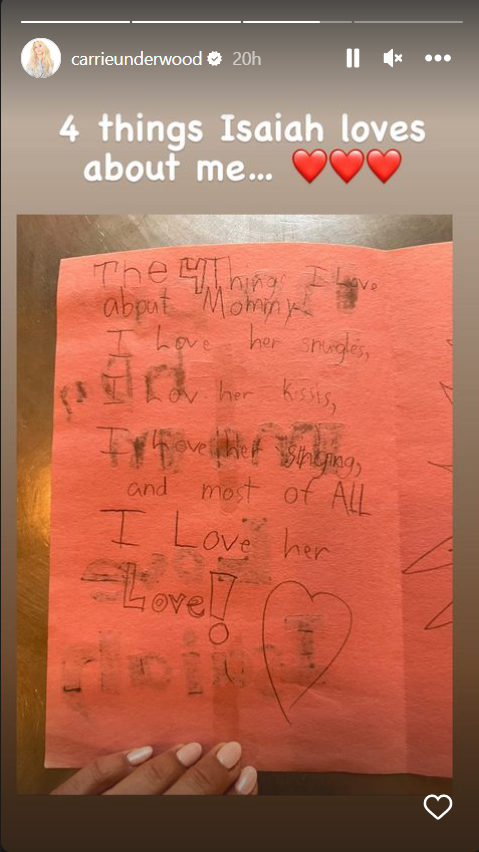 carrieunderwood 20h
4 things Isaiah loves
about me... ❤️❤️❤️
The 4 Things I Love
about Mommy!
I Love her snugles,
I Lov her kissis,
I Love her singing,
and most of ALL
I Love her
Love!